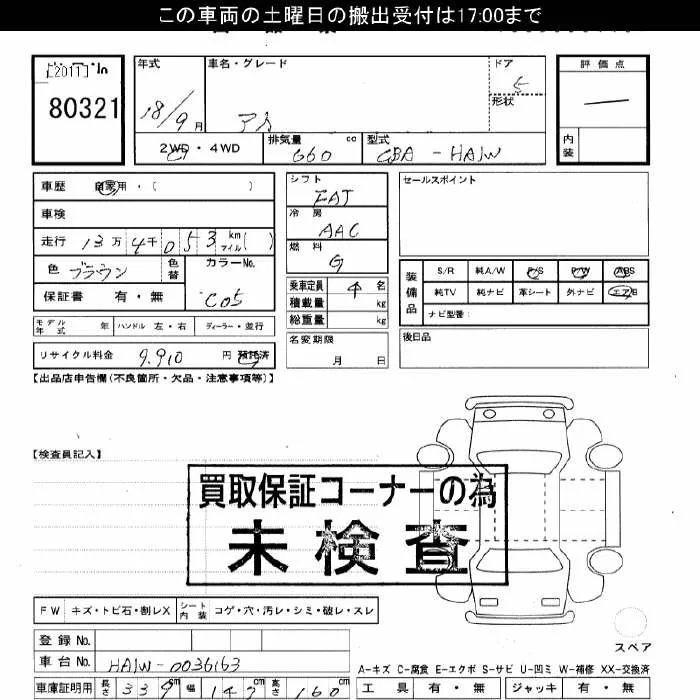 この車両の土曜日の搬出受付は17:00まで
[2011]
80321
年式
車名・グレード
ドア
5
評価点
18/9月
形状
2WD・4WD
排気量 cc
660
型式
CBA-HA1W
内装
車歴 自家用・( )
シフト
FAT
セールスポイント
車検
冷房
AAC
走行 13万4千053 km マイル( )
燃料
G
色 ブラウン
色替
カラーNo.
C05
乗車定員 4名
積載量 kg
総重量 kg
保証書 有・無
装備品
S/R 純A/W P/S P/W ABS
純TV 純ナビ 革シート 外ナビ エアB
ナビ型番:
モデル年式 年 ハンドル 左・右 ディーラー・並行
名変期限
月 日
後日品
リサイクル料金 9,910 円 預託済
【出品店申告欄(不良箇所・欠品・注意事項等)】
【検査員記入】
買取保証コーナーの為
未検査
FW キズ・トビ石・割レX シート内装 コゲ・穴・汚レ・シミ・破レ・スレ
登録No.
車台No. HA1W-0036163
スペア
A-キズ C-腐食 E-エクボ S-サビ U-凹ミ W-補修 XX-交換済
車庫証明用 長さ 339cm 幅 147cm 高さ 160cm
工具 有・無 ジャッキ 有・無